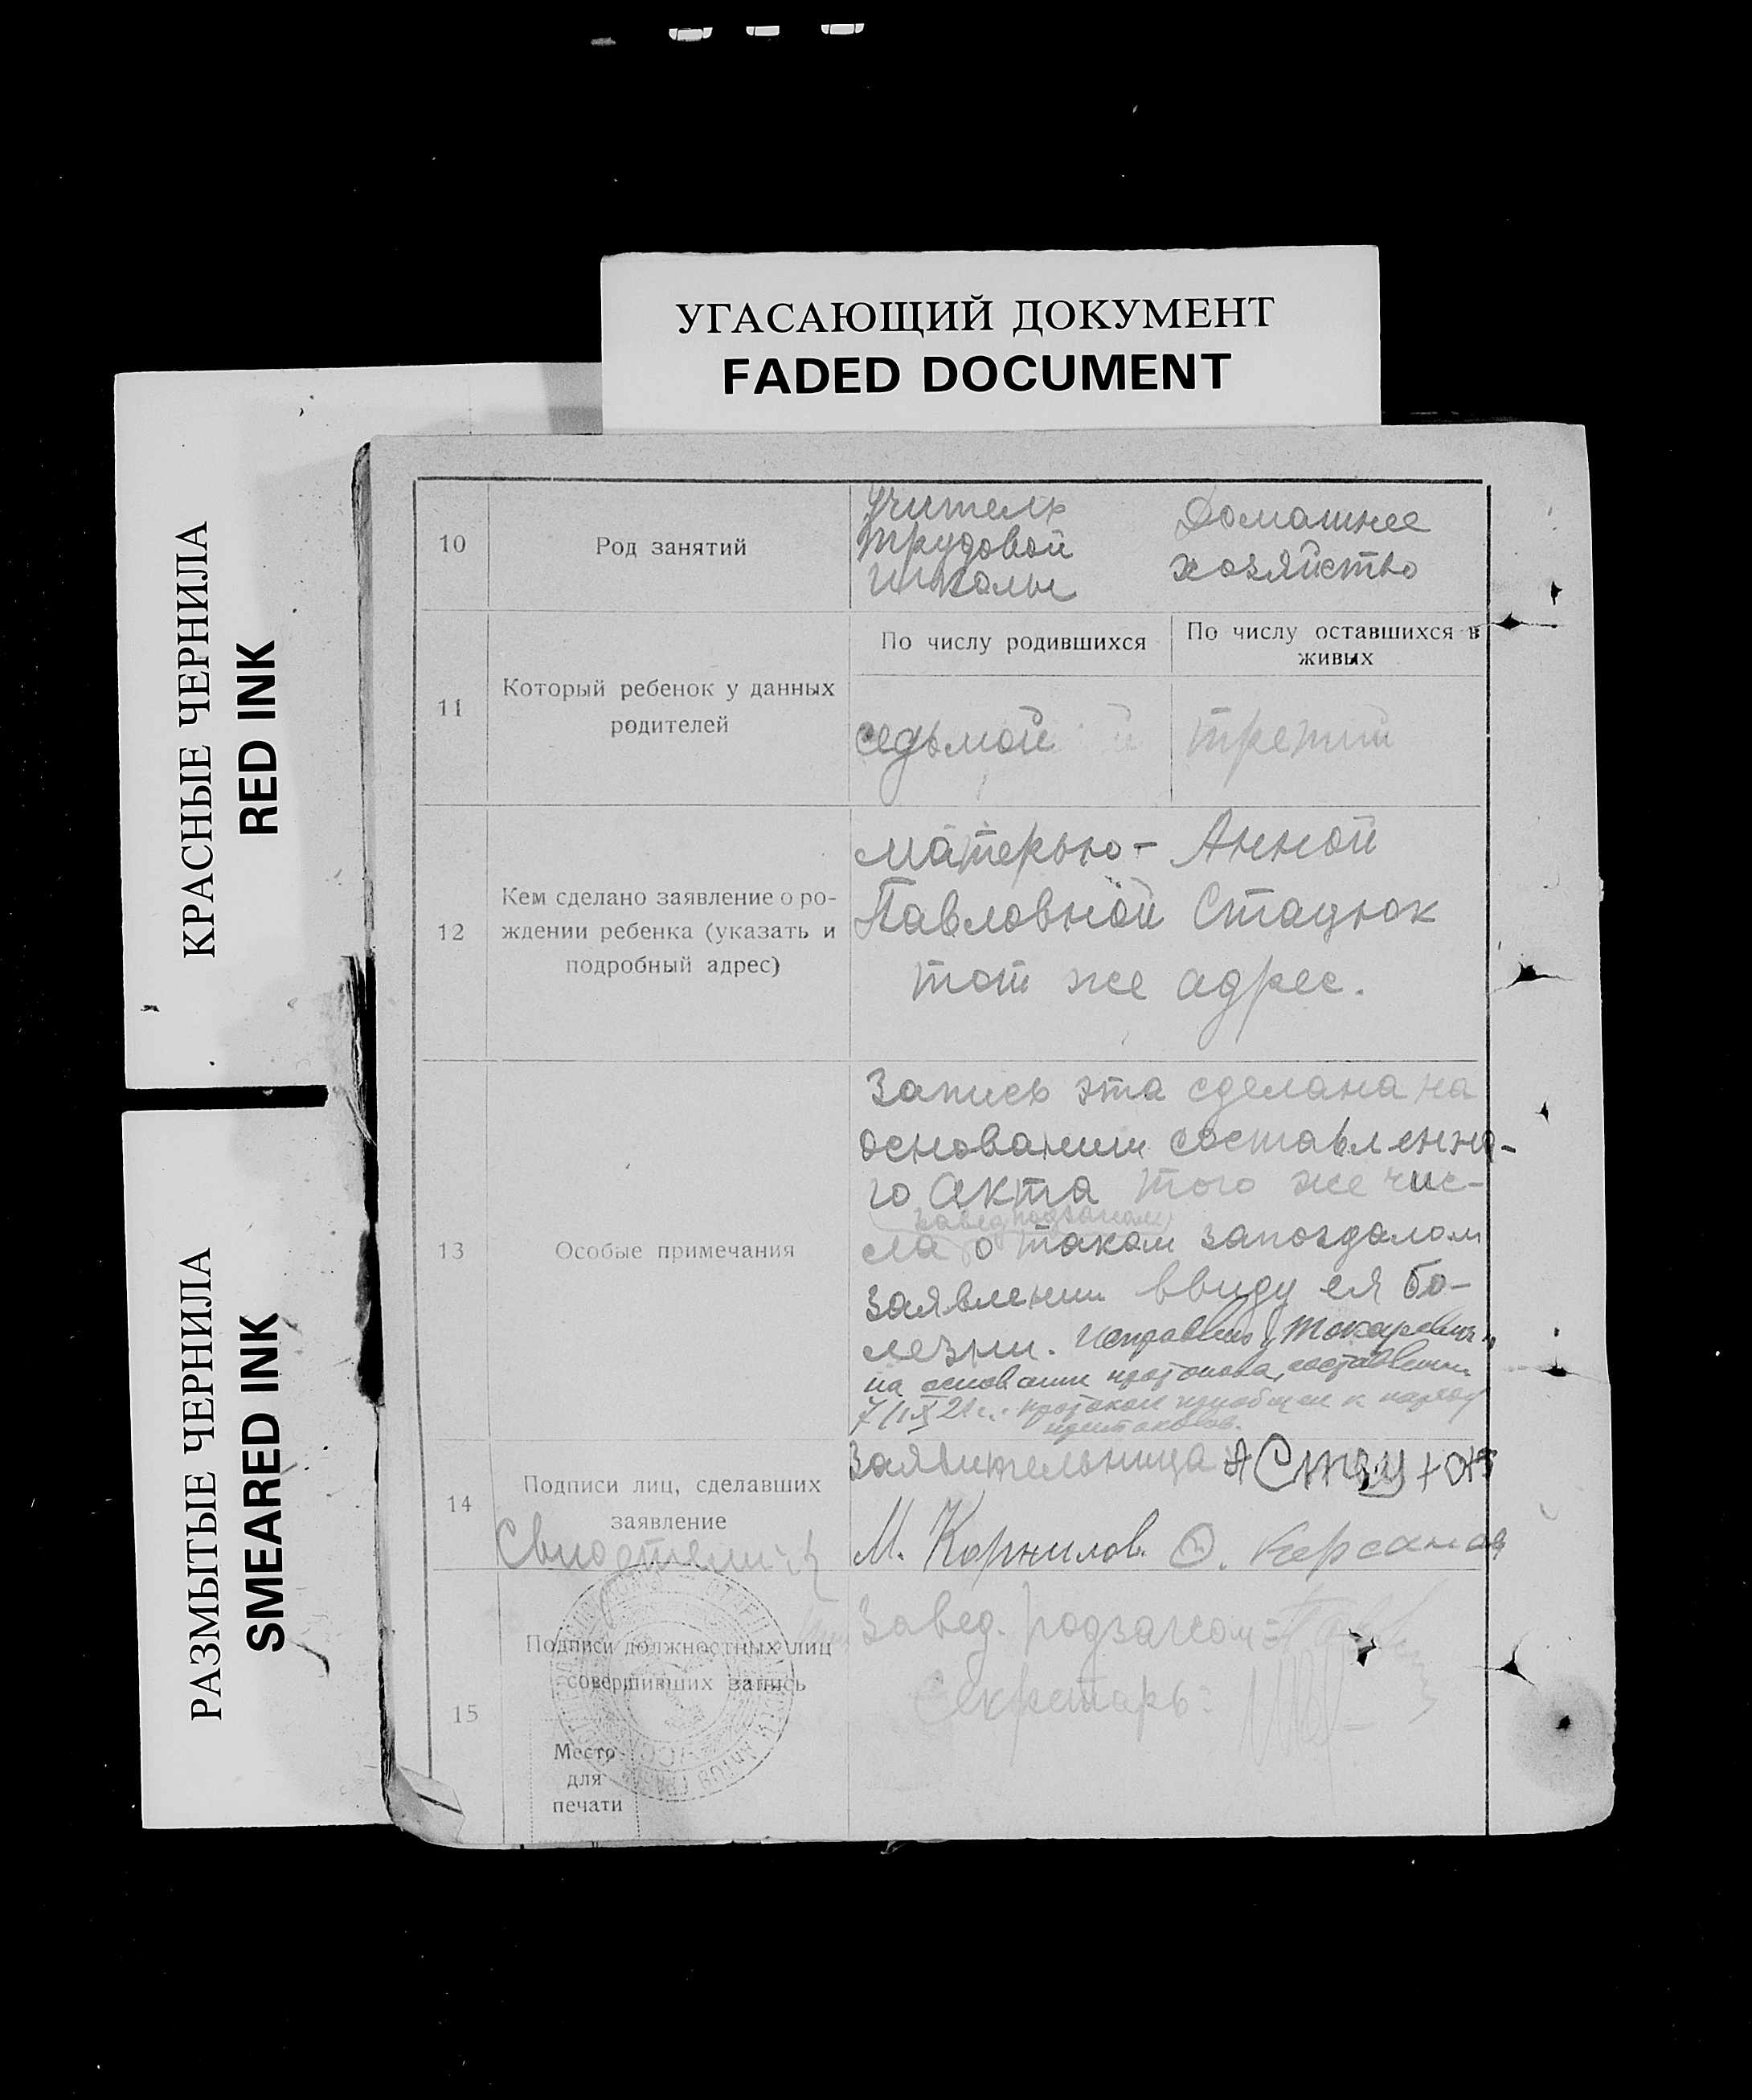 УГАСАЮЩИЙ ДОКУМЕНТ
FADED DOCUMENT
КРАСНЫЕ ЧЕРНИЛА
RED INK
РАЗМЫТЫЕ ЧЕРНИЛА
SMEARED INK
10
Род занятий
Учитель
трудовой
школы
Домашнее
хозяйство
11
Который ребенок у данных
родителей
По числу родившихся
По числу оставшихся в
живых
седьмой
третий
12
Кем сделано заявление о ро-
ждении ребенка (указать и
подробный адрес)
матерью - Анной
Павловной Стацюк
тот же адрес.
13
Особые примечания
Запись эта сделана на
основании составленно-
го акта того же чис-
(завед. подзагсом)
ла о таком запоздалом
заявлении ввиду ея бо-
лезни. Исправлено
на основании протокола, составленн
7/IX 21 г. протокол приобщен к наряду
протоколов.
14
Подписи лиц, сделавших
заявление
Свидетели:
Заявительница А Стацюк
М. Корнилов.
15
Подписи должностных лиц
совершивших запись
Место
для
печати
Завед. подзагсом
Секретарь: